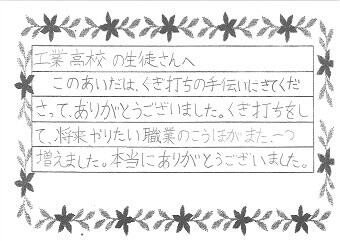 工業高校の生徒さんへ
このあいだは、くぎ打ちの手伝いにきてくだ
さって、ありがとうございました。くぎ打ちをし
て、将来やりたい職業のこうほがまた一つ
増えました。本当にありがとうございました。